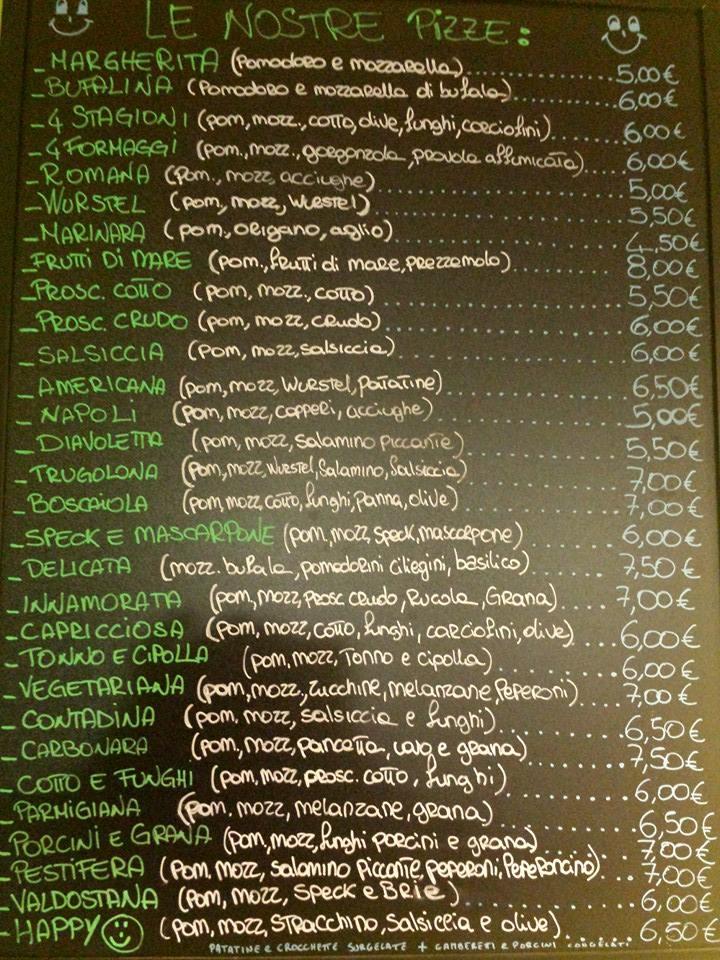 LE NOSTRE PIZZE:
-MARGHERITA (Pomodoro e mozzarella)..................5,00€
-BUFALINA (Pomodoro e mozzarella di bufala)..............6,00€
-4 STAGIONI (pom, mozz., cotto, olive, funghi, carciofini).........6,00€
-4 FORMAGGI (pom, mozz., gorgonzola, provola affumicata)....6,00€
-ROMANA (Pom., mozz, acciughe)..........................5,00€
-WURSTEL (pom, mozz, WURSTEL)..........................5,50€
-MARINARA (pom., origano, aglio)........................4,50€
-FRUTTI DI MARE (pom., frutti di mare, prezzemolo)............8,00€
-PROSC. COTTO (pom, mozz., cotto).........................5,50€
-PROSC. CRUDO (pom, mozz, crudo).........................6,00€
-SALSICCIA (Pom, mozz, salsiccia)........................6,00€
-AMERICANA (pom, mozz, WURSTEL, PATATINE)................6,50€
-NAPOLI (pom, mozz, capperi, acciughe)..................5,00€
-DIAVOLETTA (pom, mozz, salamino piccante)..............5,50€
-TRUGOLONA (pom, mozz, wurstel, salamino, salsiccia)..............7,00€
-BOSCAIOLA (pom, mozz, cotto, funghi, panna, olive)..............7,00€
-SPECK E MASCARPONE (pom, mozz, speck, mascarpone).........6,00€
-DELICATA (mozz. bufala, pomodorini ciliegini, basilico)........7,50€
-INNAMORATA (pom, mozz, prosc crudo, Rucola, Grana)....7,00€
-CAPRICCIOSA (pom, mozz, cotto, funghi, carciofini, olive)....6,00€
-TONNO E CIPOLLA (pom, mozz, Tonno e cipolla)...........6,00€
-VEGETARIANA (pom, mozz., zucchine, melanzane, peperoni)....7,00€
-CONTADINA (pom, mozz, salsiccia e funghi)............6,50€
-CARBONARA (pom, mozz, pancetta, uovo e grana).........7,50€
-COTTO E FUNGHI (pom, mozz, prosc. cotto, funghi)...........6,00€
-PARMIGIANA (pom. mozz, melanzane, grana)............6,50€
-PORCINI E GRANA (pom, mozz, funghi porcini e grana).........7,00€
-PESTIFERA (pom, mozz, salamino piccante, peperoni, peperoncino)....7,00€
-VALDOSTANA (pom, mozz, SPECK e BRIE)...............6,00€
-HAPPY (pom, mozz, STRACCHINO, salsiccia e olive)......6,50€
PATATINE e CROCCHETTE SURGELATE + GAMBERETI e PORCINI CONGELATI